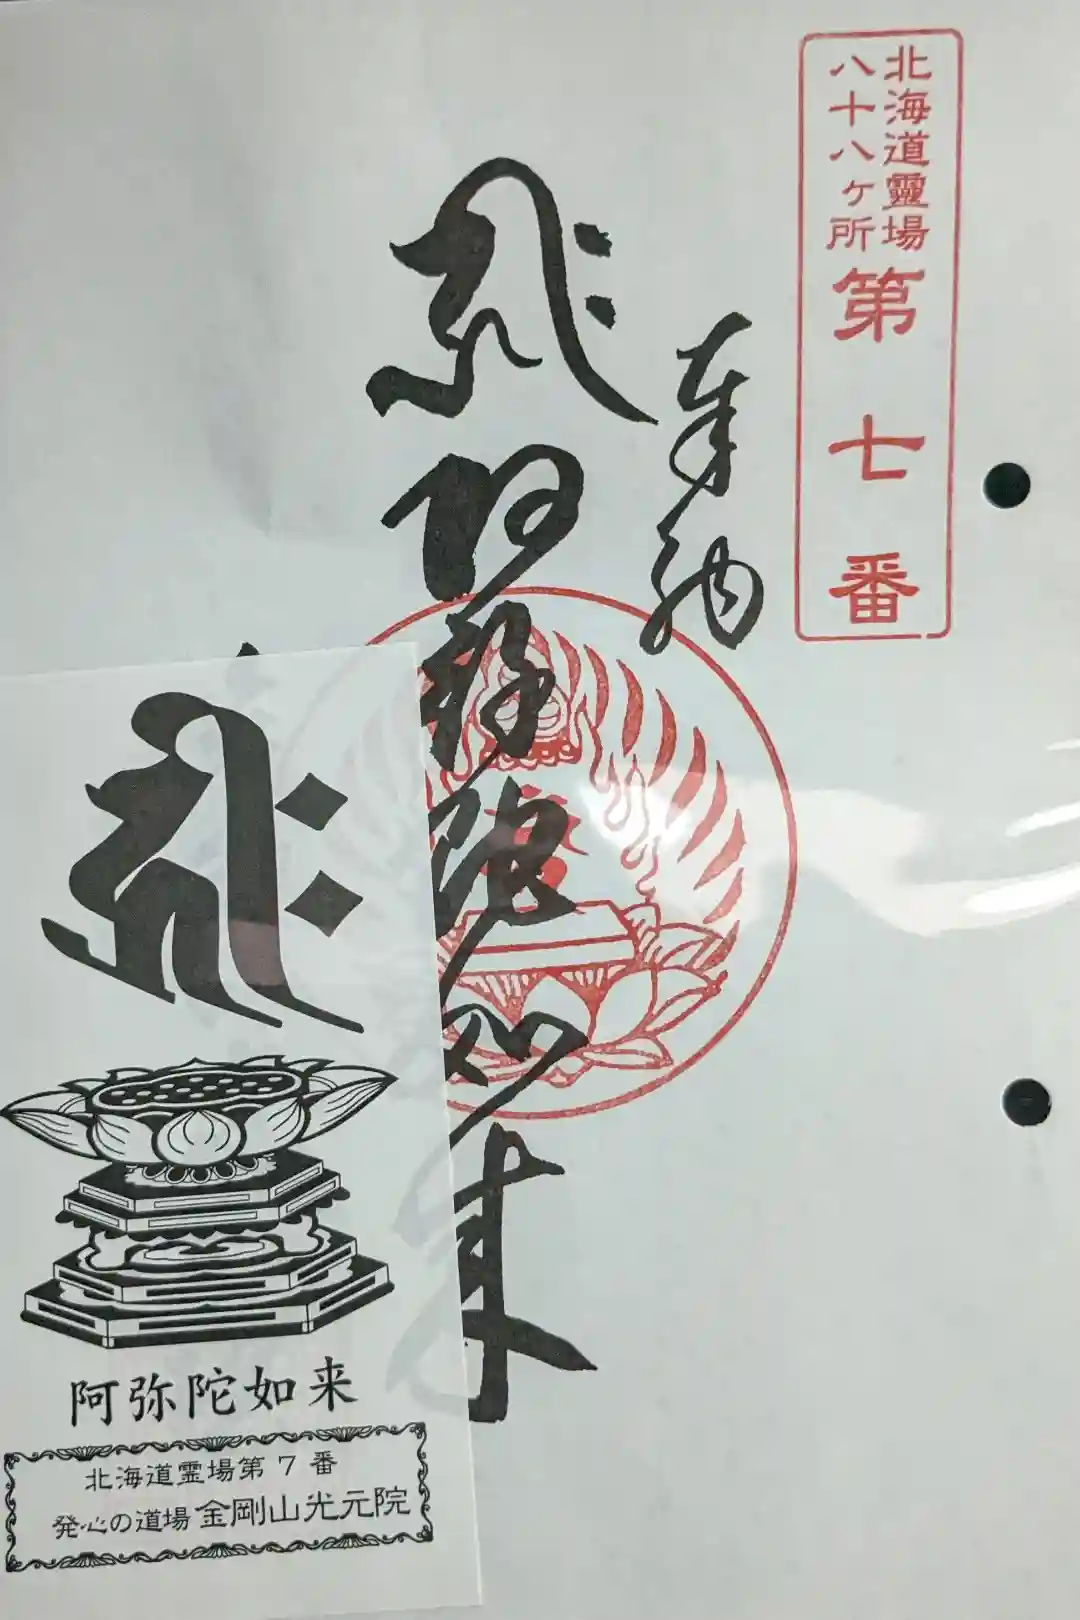 北海道霊場
八十八ヶ所
第七番
奉納
𑖮𑖿𑖨𑖱𑖾
阿弥陀如来
𑖮𑖿𑖨𑖱𑖾
阿弥陀如来
北海道霊場第7番
発心の道場 金剛山光元院